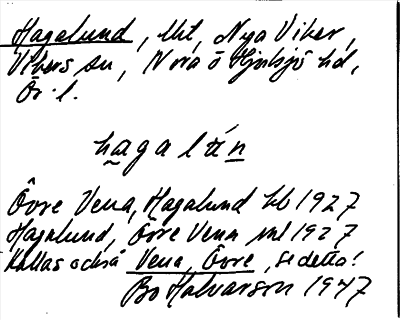 Hagalund, lht, Nya Viker,
Vikers sn, Nora o Hjulsjö hd,
Ör. l.
hagalún
Övre Vena, Hagalund hb 1927
Hagalund, Övre Vena ml 1927
Kallas också Vena, Övre, se detta!
Bo Halvarson 1947